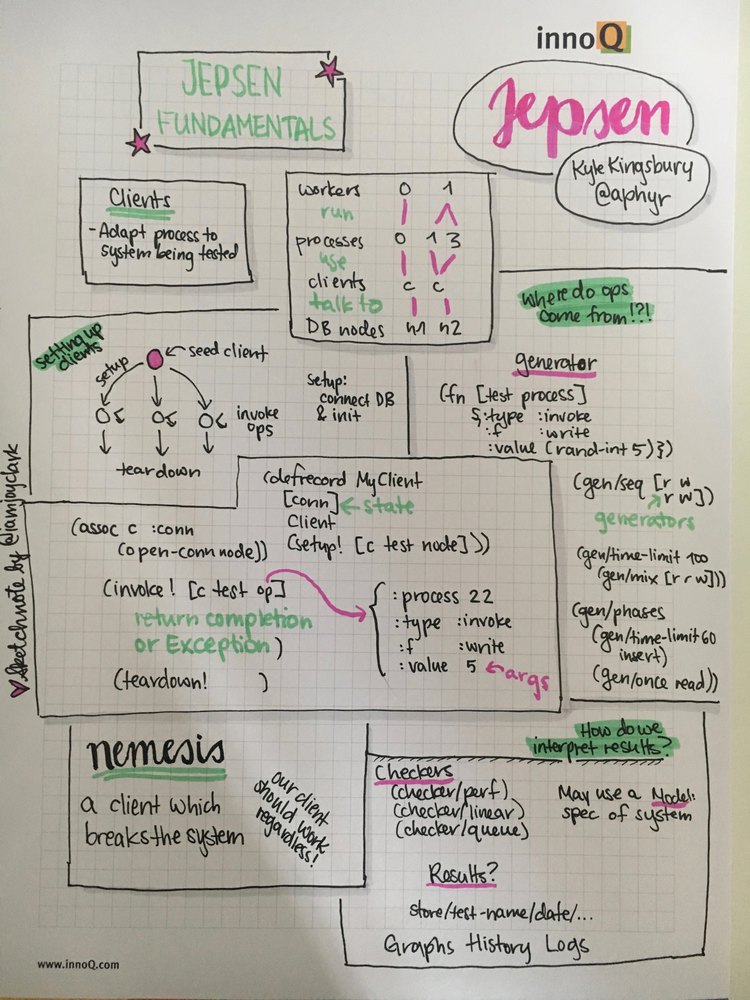 innoQ
JEPSEN
FUNDAMENTALS
Jepsen
Kyle Kingsbury
@aphyr
Clients
- Adapt process to
system being tested
workers 0 1
run
processes 0 1 3
use
clients c c
talk to
DB nodes n1 n2
where do ops
come from!?!
setting up
clients
setup
seed client
invoke
ops
teardown
setup:
connect DB
& init
generator
(fn [test process]
{:type :invoke
:f :write
:value (rand-int 5)})
(gen/seq [r w
r w])
generators
(gen/time-limit 100
(gen/mix [r r w]))
(gen/phases
(gen/time-limit 60
insert)
(gen/once read))
(defrecord MyClient
[conn] state
Client
(setup! [c test node]))
(assoc c :conn
(open-conn node))
(invoke! [c test op]
return completion
or Exception )
(teardown! )
{ :process 22
:type :invoke
:f :write
:value 5 args
Sketchnote by @iamjayclark
nemesis
a client which
breaks the system
our client
should work
regardless!
How do we
interpret results?
Checkers
(checker/perf)
(checker/linear)
(checker/queue)
May use a Model:
spec of system
Results?
store/test-name/date/...
Graphs History Logs
www.innoQ.com